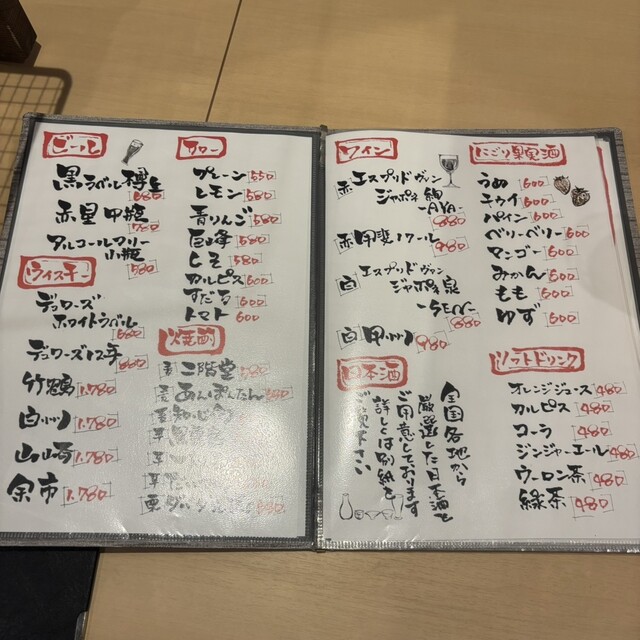 ビール
黒ラベル樽生
680
赤星 中瓶
780
アルコールフリー
小瓶
580
ウイスキー
デュワーズ
ホワイトラベル
デュワーズ12年
竹鶴 1,780
白州 1,780
山崎 1,780
余市 1,780
サワー
プレーン 550
レモン 580
青りんご 580
巨峰 580
しそ 580
カルピス 600
すだち 600
トマト 600
焼酎
麦 二階堂 580
あんぽんたん
ワイン
赤 エスプリドゥヴァン
ジャポネ 絢
-AYA-
880
赤 甲斐ノワール 980
白 エスプリドゥヴァン
ジャポネ 泉
-SEN-
880
白 甲州 980
日本酒
全国各地から
厳選した日本酒を
ご用意しております
詳しくは別紙を
ご覧下さい
にごり果実酒
うめ 600
キウイ 600
パイン 600
ベリーベリー 600
マンゴー 600
みかん 600
もも 600
ゆず 600
ソフトドリンク
オレンジジュース 480
カルピス 480
コーラ 480
ジンジャーエール 480
ウーロン茶 480
緑茶 480